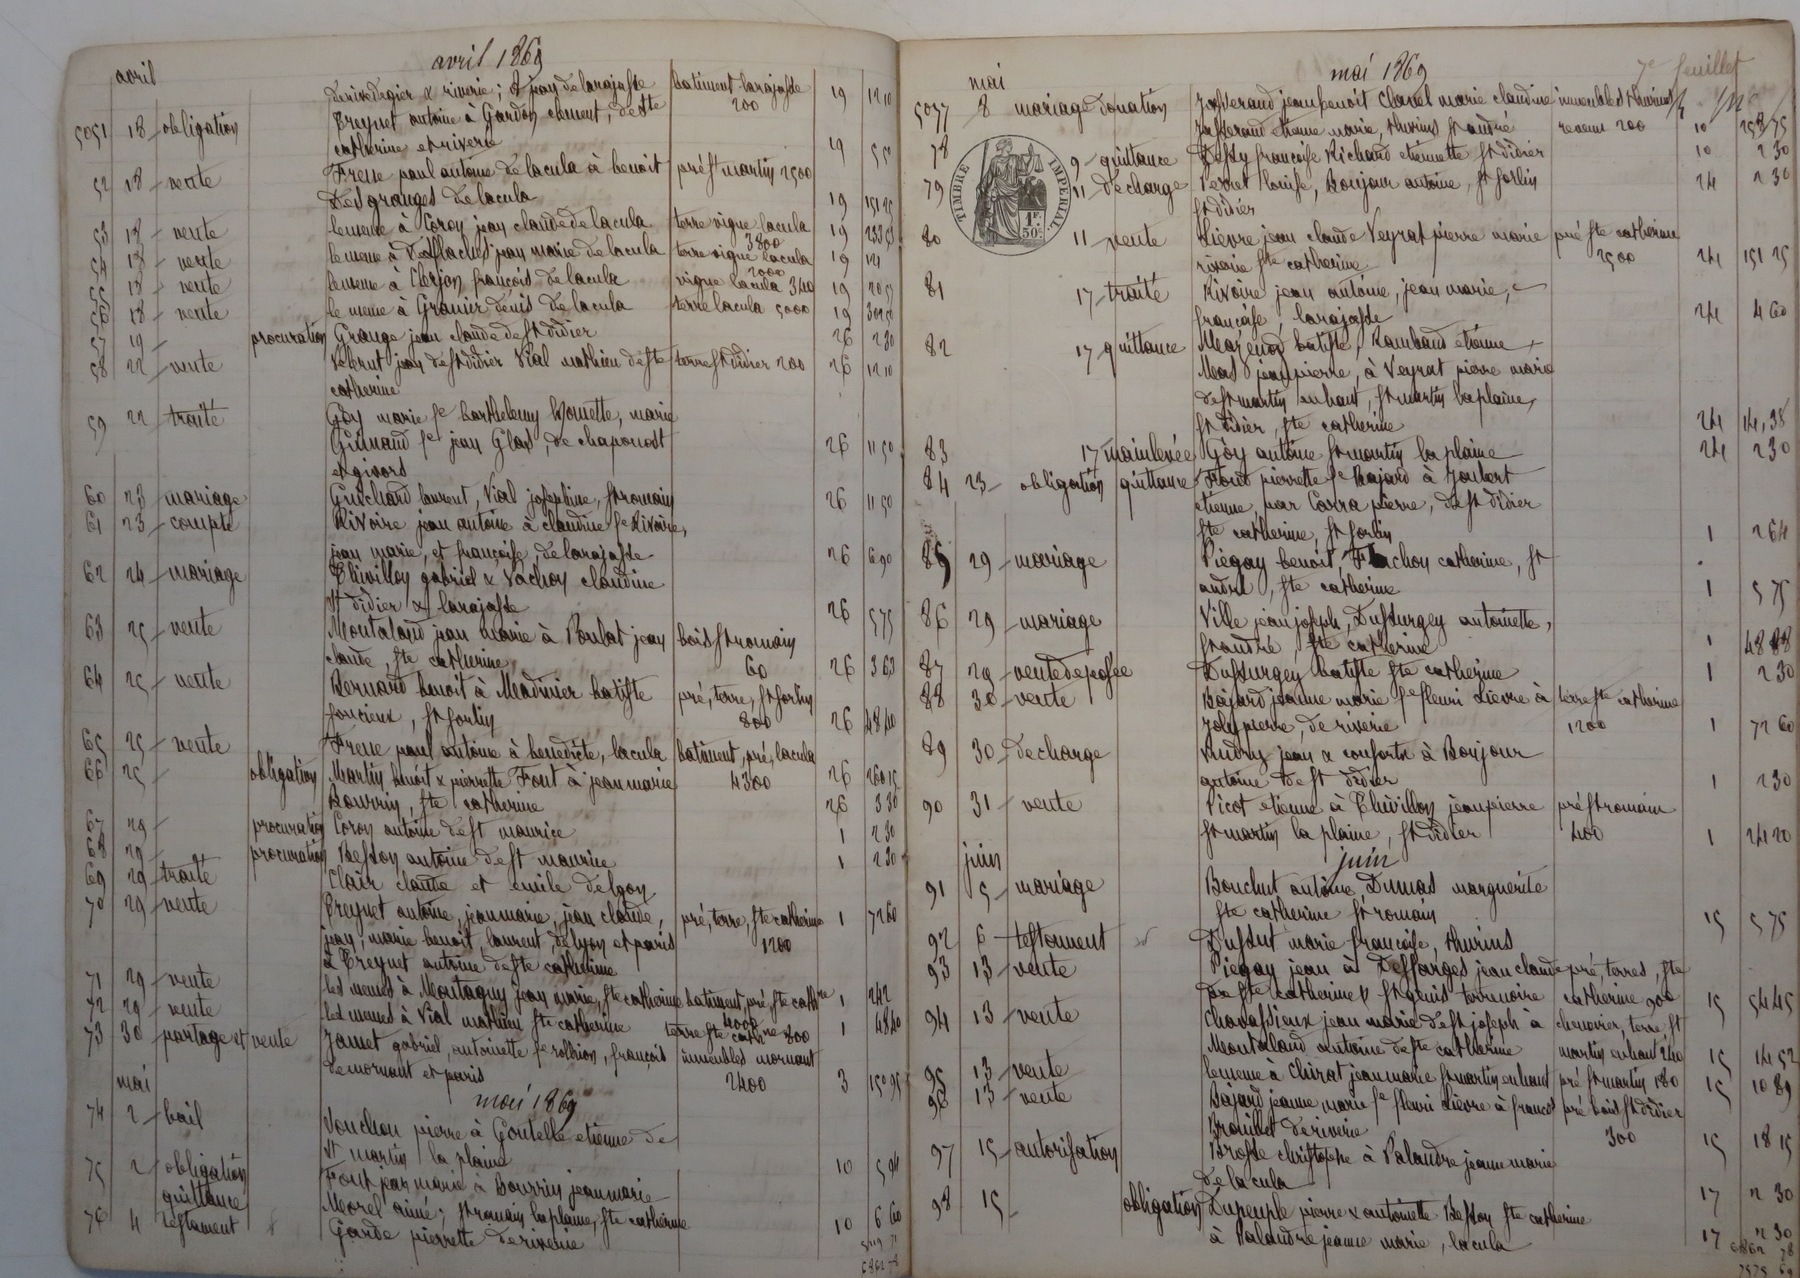 avril 1869
avril
de riverie ; St jean de larajasse batiment larajasse 19 12 10
5051 18 obligation Treynet antoine à Gardon clement, de Ste 200
catherine et riverie 19 55
52 18 vente Fresse paul antoine de lacula à benoit pré St martin 2500
Desgranges de lacula 19 151 25
53 18 vente le meme à Coron jean claude de lacula terre vigne lacula 19
3800
54 18 vente le meme à Desflaches jean marie de lacula terre vigne lacula 19 121
2000
55 18 vente le meme à Clerjon françois de lacula vigne lacula 340 19 20 57
56 18 vente le meme à Granier denis de lacula terre lacula 5000 19 302 50
57 19 procuration Grange jean claude de St didier 26 2 30
58 22 vente jean de St didier Vial mathieu de Ste terre St didier 200 26 12 10
catherine
59 22 traité Goy marie fe barthelemy, marie
Guinand fe jean Glas, de chaponost 26 11 50
et givors
60 23 mariage Guichard laurent, Vial josephine, St romain 26 11 50
61 23 compte Rivoire jean antoine à claudine fe Rivoire,
jean marie, et françoise de larajasse 26 6 90
62 24 mariage Thivillon gabriel & Vachon claudine
St didier & larajasse 26 5 75
63 25 vente Montaland jean marie à Poulat jean bois St romain
claude, Ste catherine 60 26 3 63
64 25 vente Bernard benoit à Madinier batiste pré, terre, St sorlin
foncieux, St sorlin 800 26 48 40
65 25 vente Fresse paul antoine à benedicte, lacula batiment, pré, lacula
66 25 obligation Martin benoit & pierrette Font à jean marie 4300 26 260 15
Bouvrin, Ste catherine 26 3 30
67 29 procuration Coron antoine de St maurice 1 2 30
68 29 procuration Besson antoine de St maurice 1 2 30
69 29 traité Clair claude et emile de lyon
70 29 vente Treynet antoine, jean marie, jean claude, pré, terre, Ste catherine 1 72 60
jean, marie benoit, laurent de lyon et paris 1200
à Treynet antoine de Ste catherine
71 29 vente les memes à Montagny jean marie, Ste catherine batiment, pré, Ste cathne 1 242
4000
72 29 vente les memes à Vial mathieu Ste catherine terre Ste cathne 800 1 48 40
73 30 partage et vente Jamet gabriel, antoinette fe rolhion, françois immeubles mornant
de mornant et paris 2400 3 150 95
mai
mai 1869
74 2 bail Vouchon pierre à Goutelle etienne de
St martin la plaine 10 5 94
75 2 obligation Font jean marie à Bouvrin jean marie
quittance Morel aimé ; St romain la plaine, Ste catherine 10 6 60
76 4 testament Garde pierrette de riverie
mai 1869
7e feuillet
mai
5077 8 mariage donation Jasserand jean benoit Clavel marie claudine immeubles thurins
Jasserand etienne marie, thurins St andré revenu 200 10
78 9 quittance françoise Richard etiennette St didier 10 2 30
79 11 décharge Verret louise, Bonjour antoine, St sorlin 24 2 30
St didier
TIMBRE IMPERIAL
1F. 50c.
80 11 vente Lievre jean claude Veyrat pierre marie pré Ste catherine
riverie Ste catherine 2500 24 151 25
81 17 traité Rivoire jean antoine, jean marie,
françoise larajasse 24 4 60
82 17 quittance batiste, Rambaud etienne
Mas jean pierre, à Veyrat pierre marie
de St martin en haut, St martin la plaine,
St didier, Ste catherine 24 14,38
83 17 mainlevée Goy antoine St martin la plaine 24 2 30
84 23 obligation quittance Font pierrette fe Bajard à Joubert
etienne, par Carra pierre, de St didier
Ste catherine, St sorlin 1 2 64
85 29 mariage Piegay benoit, catherine, St
andré, Ste catherine 1 5 75
86 29 mariage Ville jean joseph, Dussurgey antoinette,
St andré, Ste catherine 1 48 88
87 29 vente deposée Dussurgey batiste Ste catherine 1 2 30
88 30 vente Bajard jeanne marie fe fleuri Lievre à terre Ste catherine
Joly pierre, de riverie 1200 1 72 60
89 30 decharge jean & consorts à Bonjour
antoine de St didier 1 2 30
90 31 vente Picot etienne à Thivillon jean pierre pré St romain
St martin la plaine, St didier 400 1 24 20
juin
juin
91 5 mariage Bouchut antoine Dumas marguerite
Ste catherine St romain 15 5 75
92 6 testament Dussut marie françoise, thurins
93 13 vente Piegay jean à Desfarges jean claude pré, terres, Ste
de Ste catherine & St genis terrenoire catherine 900 15 54 45
94 13 vente Chavassieux jean marie de St joseph à chenevier, terre, St
Montaland antoine de Ste catherine martin en haut 240 15 14 52
95 13 vente le meme à Chirat jean marie St martin en haut pré St martin 180 15 10 89
96 13 vente Bajard jeanne marie fe fleuri Lievre à françois pré bois St didier
de riverie 300 15 18 15
97 15 autorisation Brosse christophe à Palandre jeanne marie
de lacula 17 2 30
98 15 obligation Dupeuple pierre & antoinette Besson Ste catherine
à Palandre jeanne marie, lacula 17 2 30
6862 78